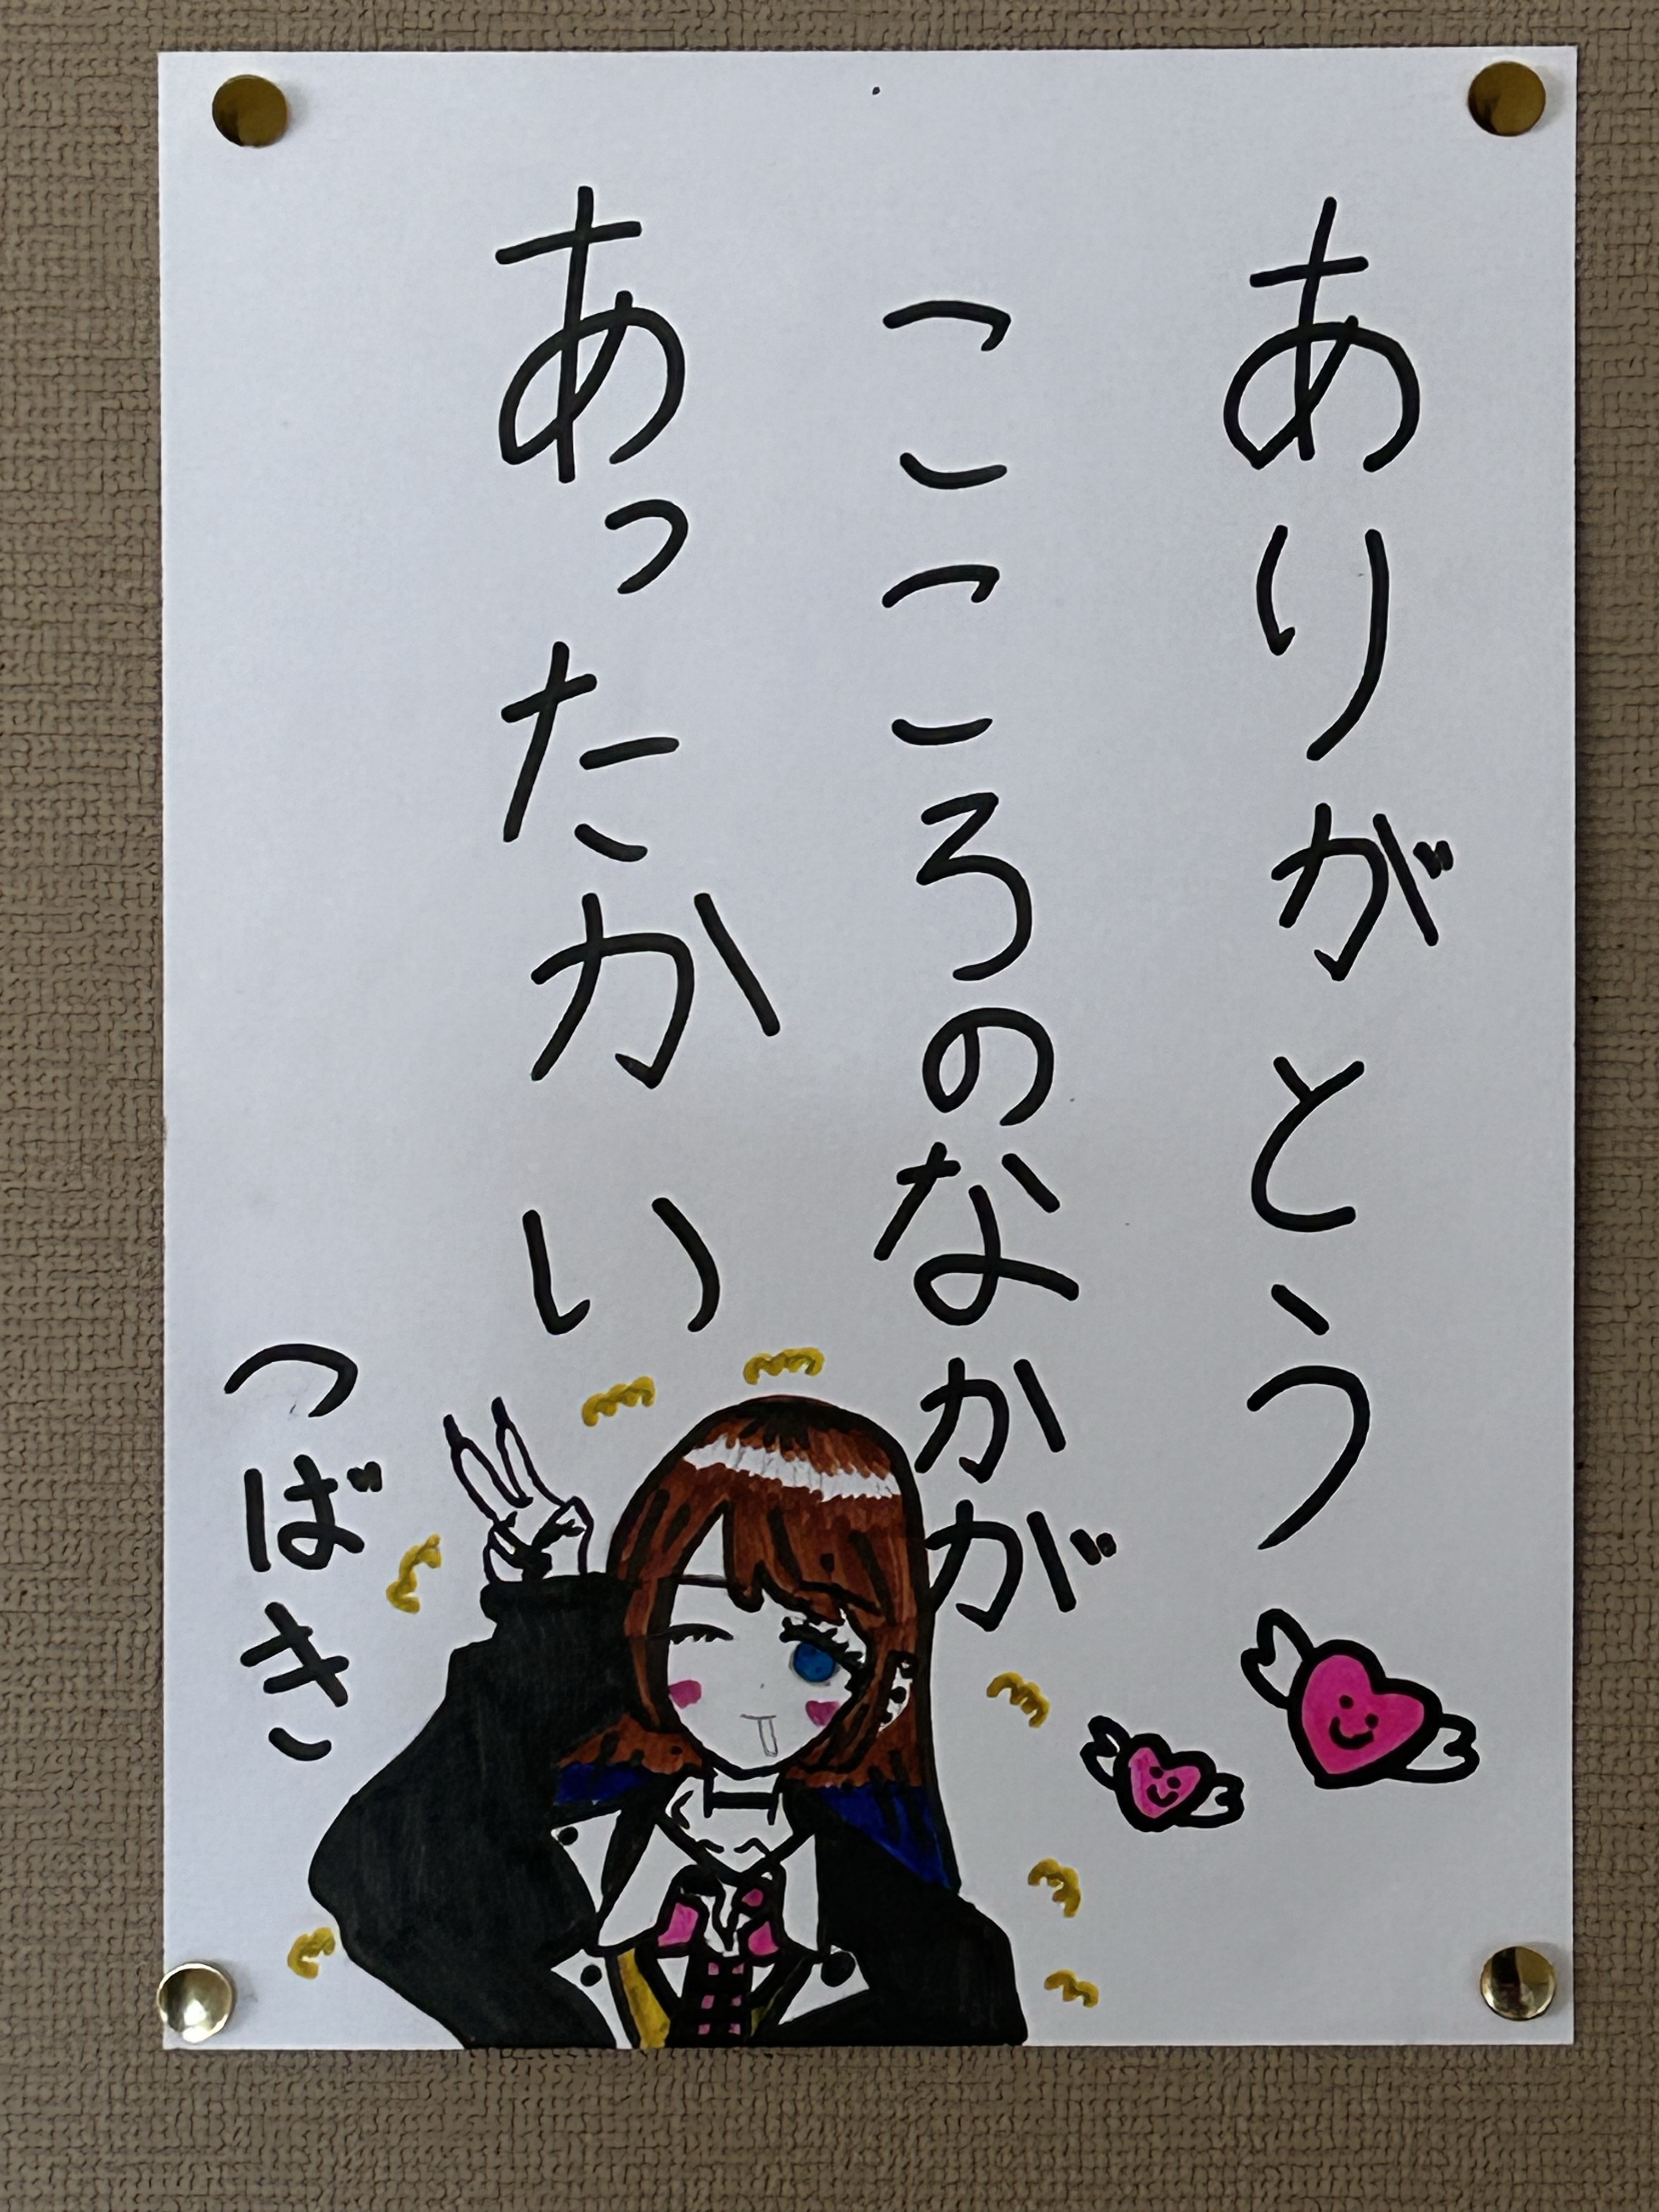 ありがとう
こころのなかが
あったかい
つばき